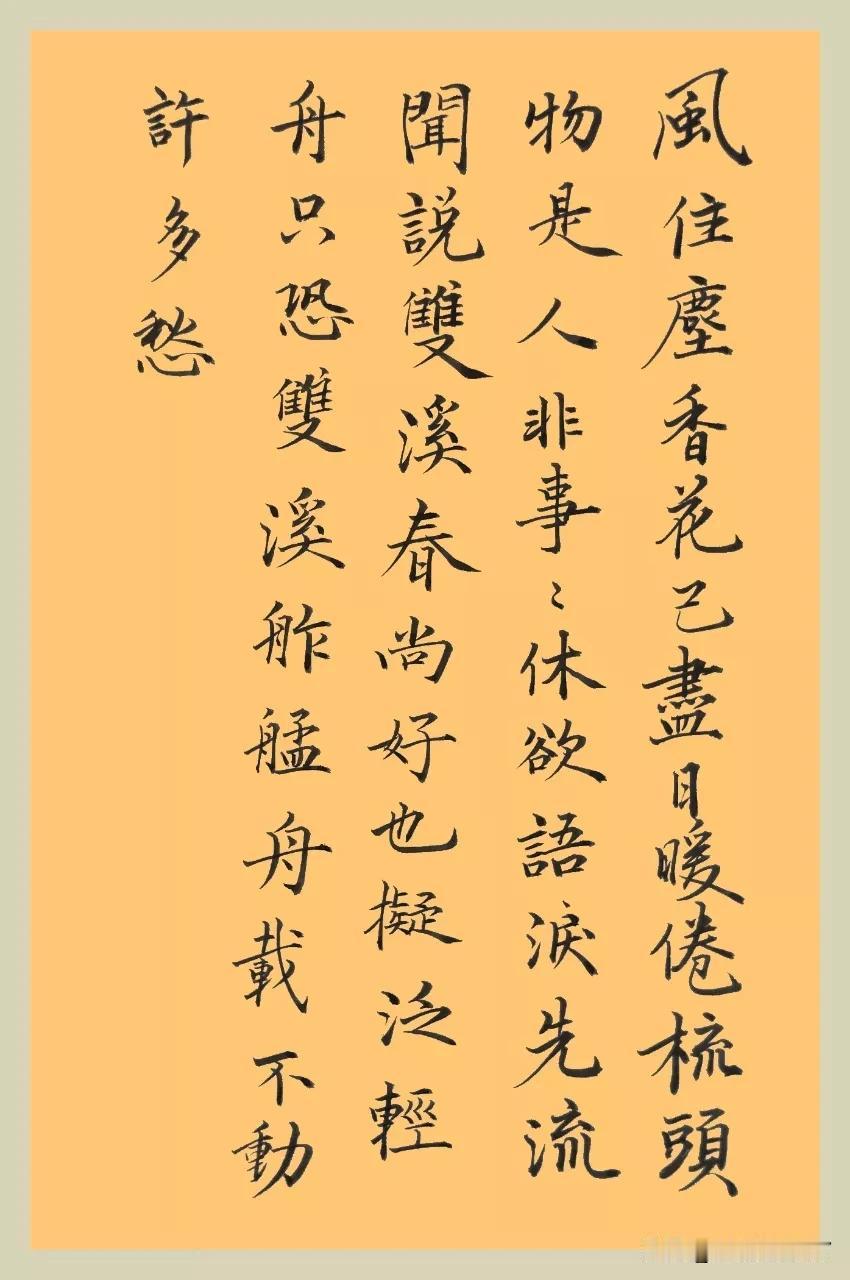 風住塵香花已盡日暖倦梳頭
物是人非事〻休欲語淚先流
聞説雙溪春尚好也擬泛輕
舟只恐雙溪舴艋舟載不動
許多愁